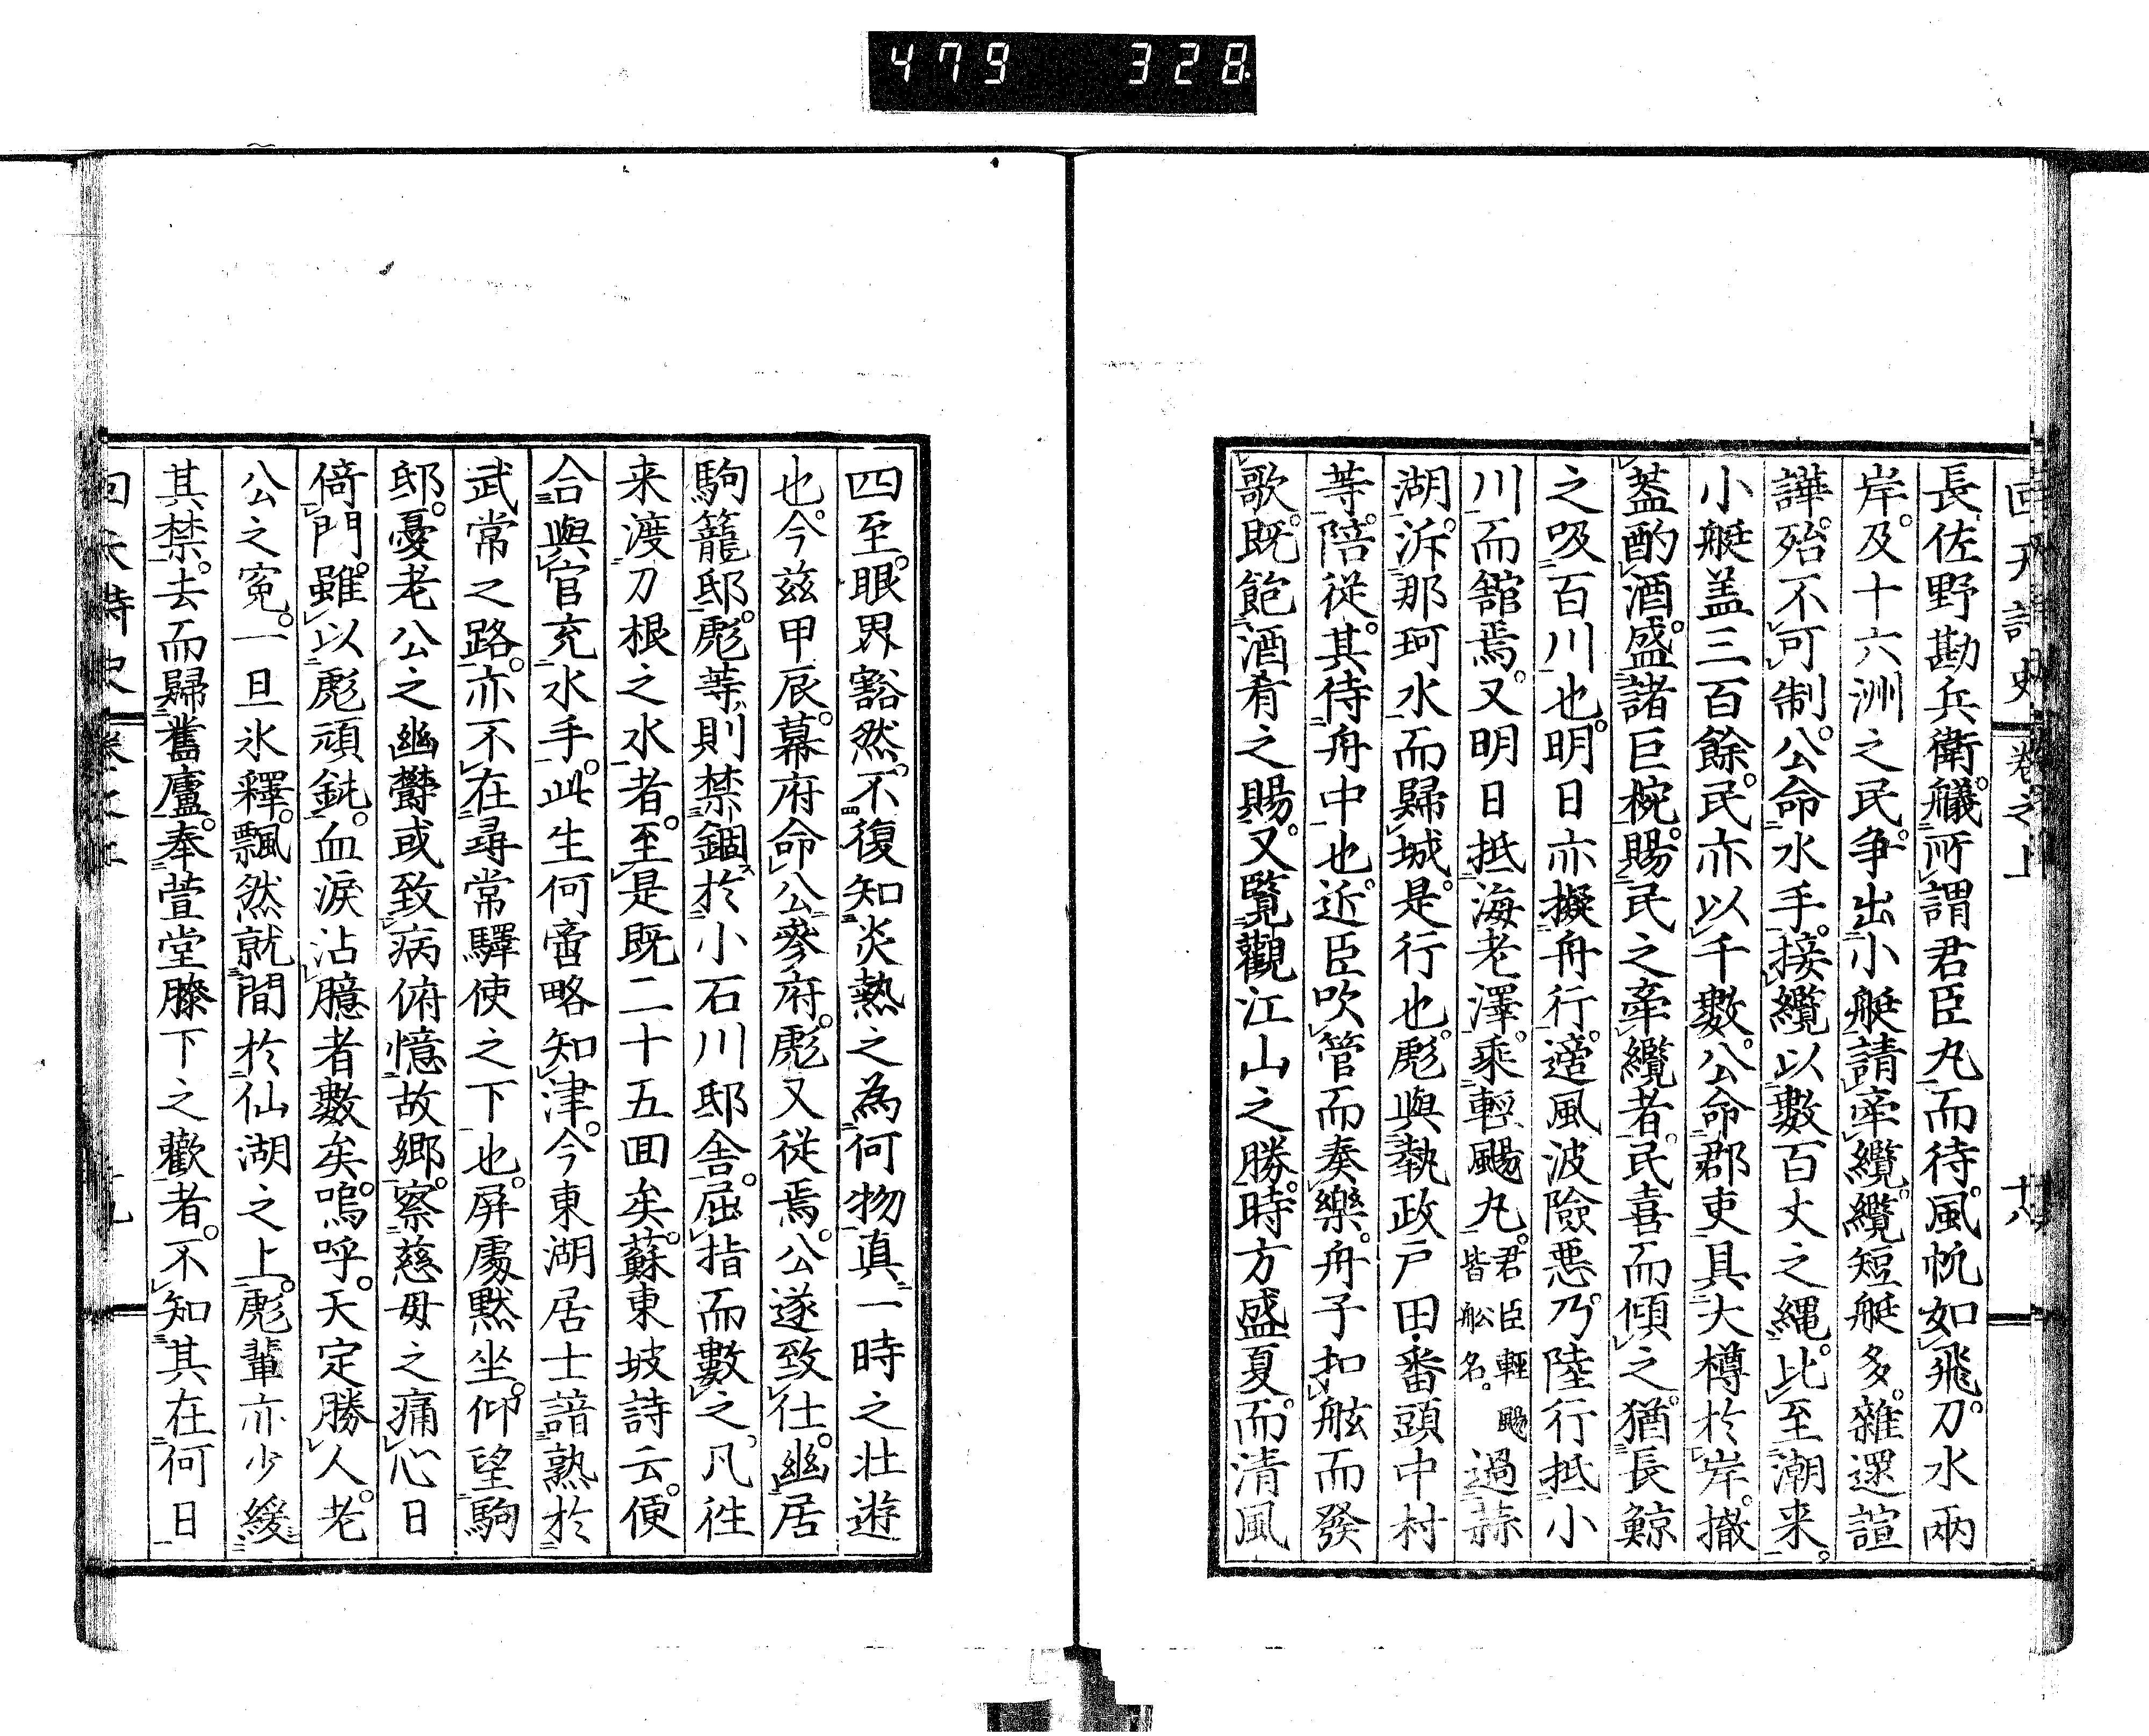 479 328
回天詩史 卷之上 十八
長佐野勘兵衛。艤所謂君臣丸而待。風帆如飛。刀水兩
岸。及十六洲之民。争出小艇請牽纜。纜短艇多。雜遝諠
譁。殆不可制。公命水手。接纜以數百丈之縄。比至潮来。
小艇盖三百餘。民亦以千數。公命郡吏具大樽於岸。撤
蓋酌酒。盛諸巨椀。賜民之牽纜者。民喜而傾之。猶長鯨
之吸百川也。明日亦擬舟行。適風波險悪。乃陸行抵小
川而舘焉。又明日抵海老澤。乘輕颺丸。君臣輕颺皆舩名。過蒜
湖。泝那珂水而歸城。是行也。彪與執政戸田番頭中村
等。陪従。其待舟中也。近臣吹管而奏樂。舟子扣舷而發
歌。既飽酒肴之賜。又覽觀江山之勝。時方盛夏。而清風
四至。眼界豁然。不復知炎熱之為何物。真一時之壮遊
也。今茲甲辰。幕府命公參府。彪又従焉。公遂致仕。幽居
駒籠邸。彪等則禁錮於小石川邸舎。屈指而數之。凡徃
来渡刀根之水者。至是既二十五囬矣。蘇東坡詩云。便
合與官充水手。此生何啻略知津。今東湖居士諳熟於
武常之路。亦不在尋常驛使之下也。屏處黙坐。仰望駒
邸。憂老公之幽欝或致病。俯憶故郷。察慈母之痛心日
倚門。雖以彪頑鈍。血淚沾臆者數矣。嗚呼。天定勝人。老
公之寃。一旦氷釋。飄然就間於仙湖之上。彪輩亦少緩
其禁。去而歸舊廬。奉萱堂膝下之歡者。不知其在何日